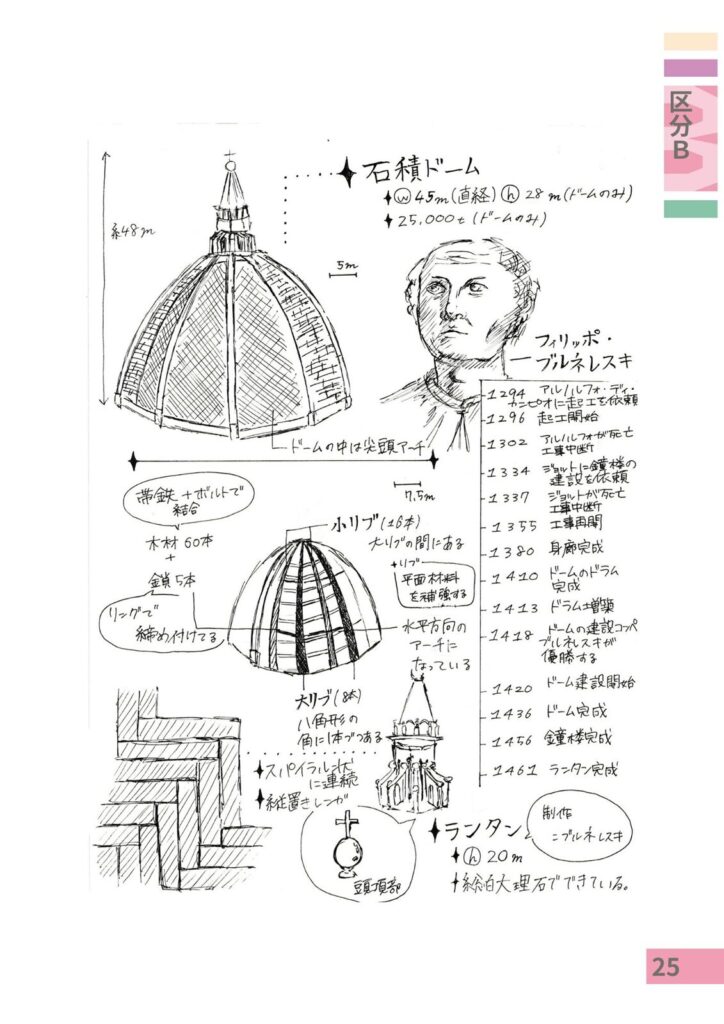 区分B
石積ドーム
ⓦ 45m(直経) ⓗ 28m(ドームのみ)
25,000t(ドームのみ)
約48m
5m
フィリッポ・
ブルネレスキ
ドームの中は尖頭アーチ
7.5m
1294 アルノルフォ・ディ・
カンピオに起工を依頼
1296 起工開始
1302 アルノルフォが死亡
工事中断
1334 ジョットに鐘楼の
建設を依頼
1337 ジョットが死亡
工事中断
1355 工事再開
1380 身廊完成
1410 ドームのドラム
完成
1413 ドラム増築
1418 ドームの建設コンペ
ブルネレスキが
優勝する
1420 ドーム建設開始
1436 ドーム完成
1456 鐘楼完成
1461 ランタン完成
帯鉄+ボルトで
結合
木材60本
+
鎖5本
リングで
締め付けてる
小リブ(16本)
大リブの間にある
リブ
平面材料
を補強する
水平方向の
アーチに
なっている
大リブ(8本)
八角形の
角に1本づつある
スパイラル状
に連続
縦置きレンガ
頭頂部
ランタン
制作
=ブルネレスキ
ⓗ 20m
総白大理石でできている。
25